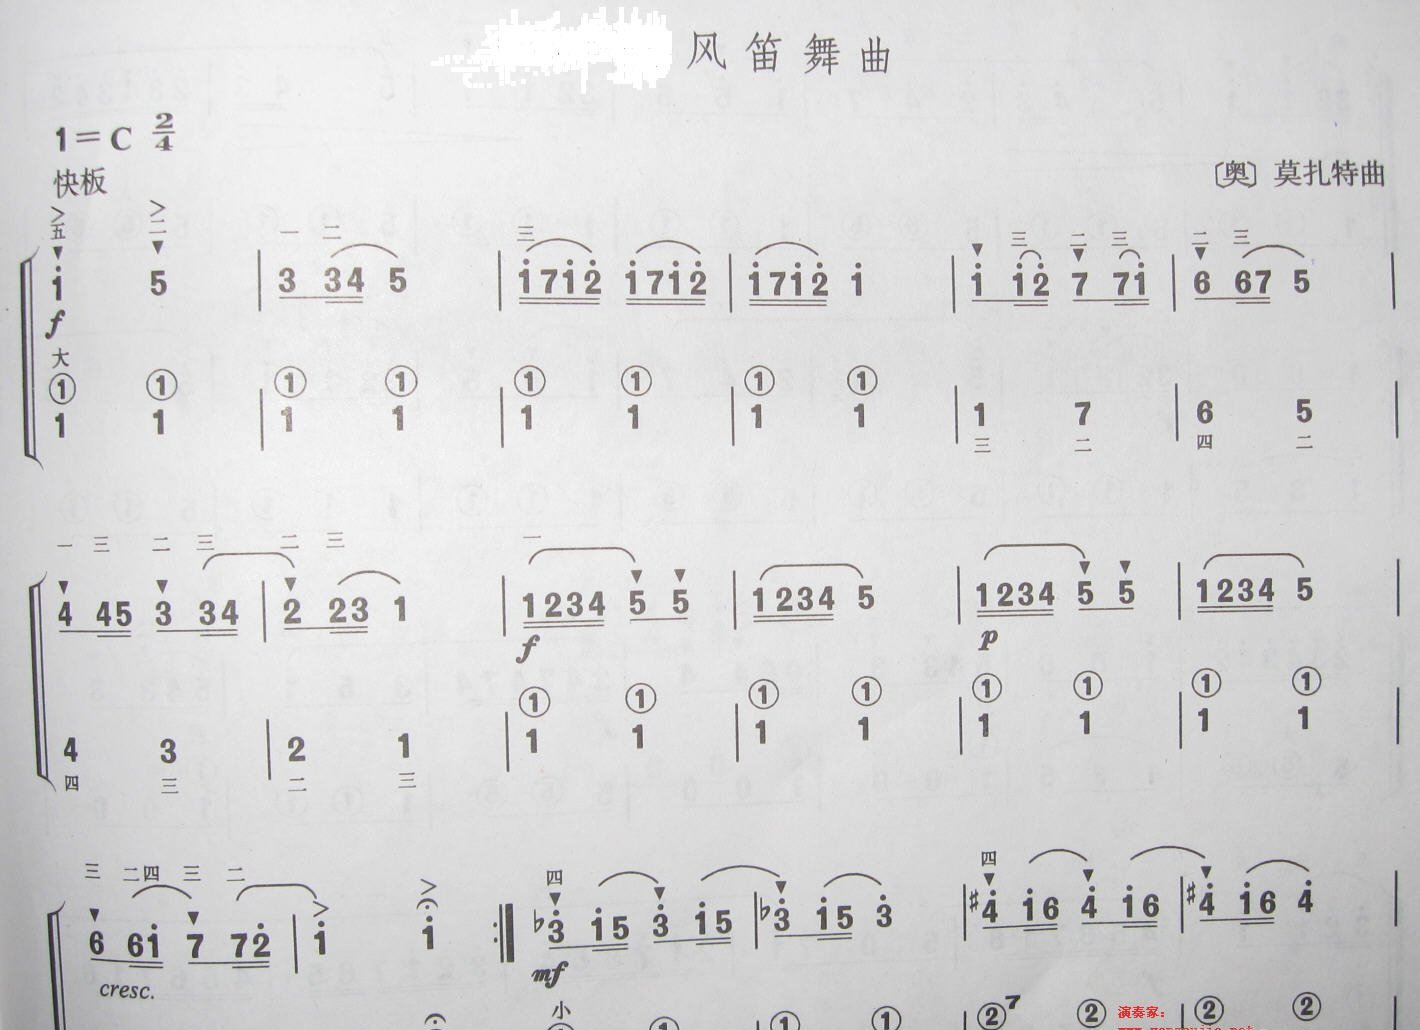 风笛舞曲
1=C 2/4
快板
〔奥〕 莫扎特曲
> >
五 二 一 二 三 三 二 三 二 三
i 5 | 3 34 5 | i7i2̇ i7i2̇ | i7i2̇ i | i i2̇ 7 7i | 6 67 5 |
f
大
① ① ① ① ① ① ① ①
1 1 | 1 1 | 1 1 | 1 1 | 1 7 | 6 5 |
三 二 四 二
一 三 二 三 二 三 一
4 45 3 34 | 2 23 1 | 1234 5 5 | 1234 5 | 1234 5 5 | 1234 5 |
f p
① ① ① ① ① ① ① ①
4 3 | 2 1 | 1 1 | 1 1 | 1 1 | 1 1 |
四 三 二 三
三 二四 三 二 > > 四 四
6 6i 7 72̇ | i i :‖ ♭3̇ i5 3̇ i5 | ♭3̇ i5 3̇ | ♯4̇ i6 4̇ i6 | ♯4̇ i6 4̇ |
cresc. mf
小
① ① ① ① ②7 ② ② ②
演奏家: